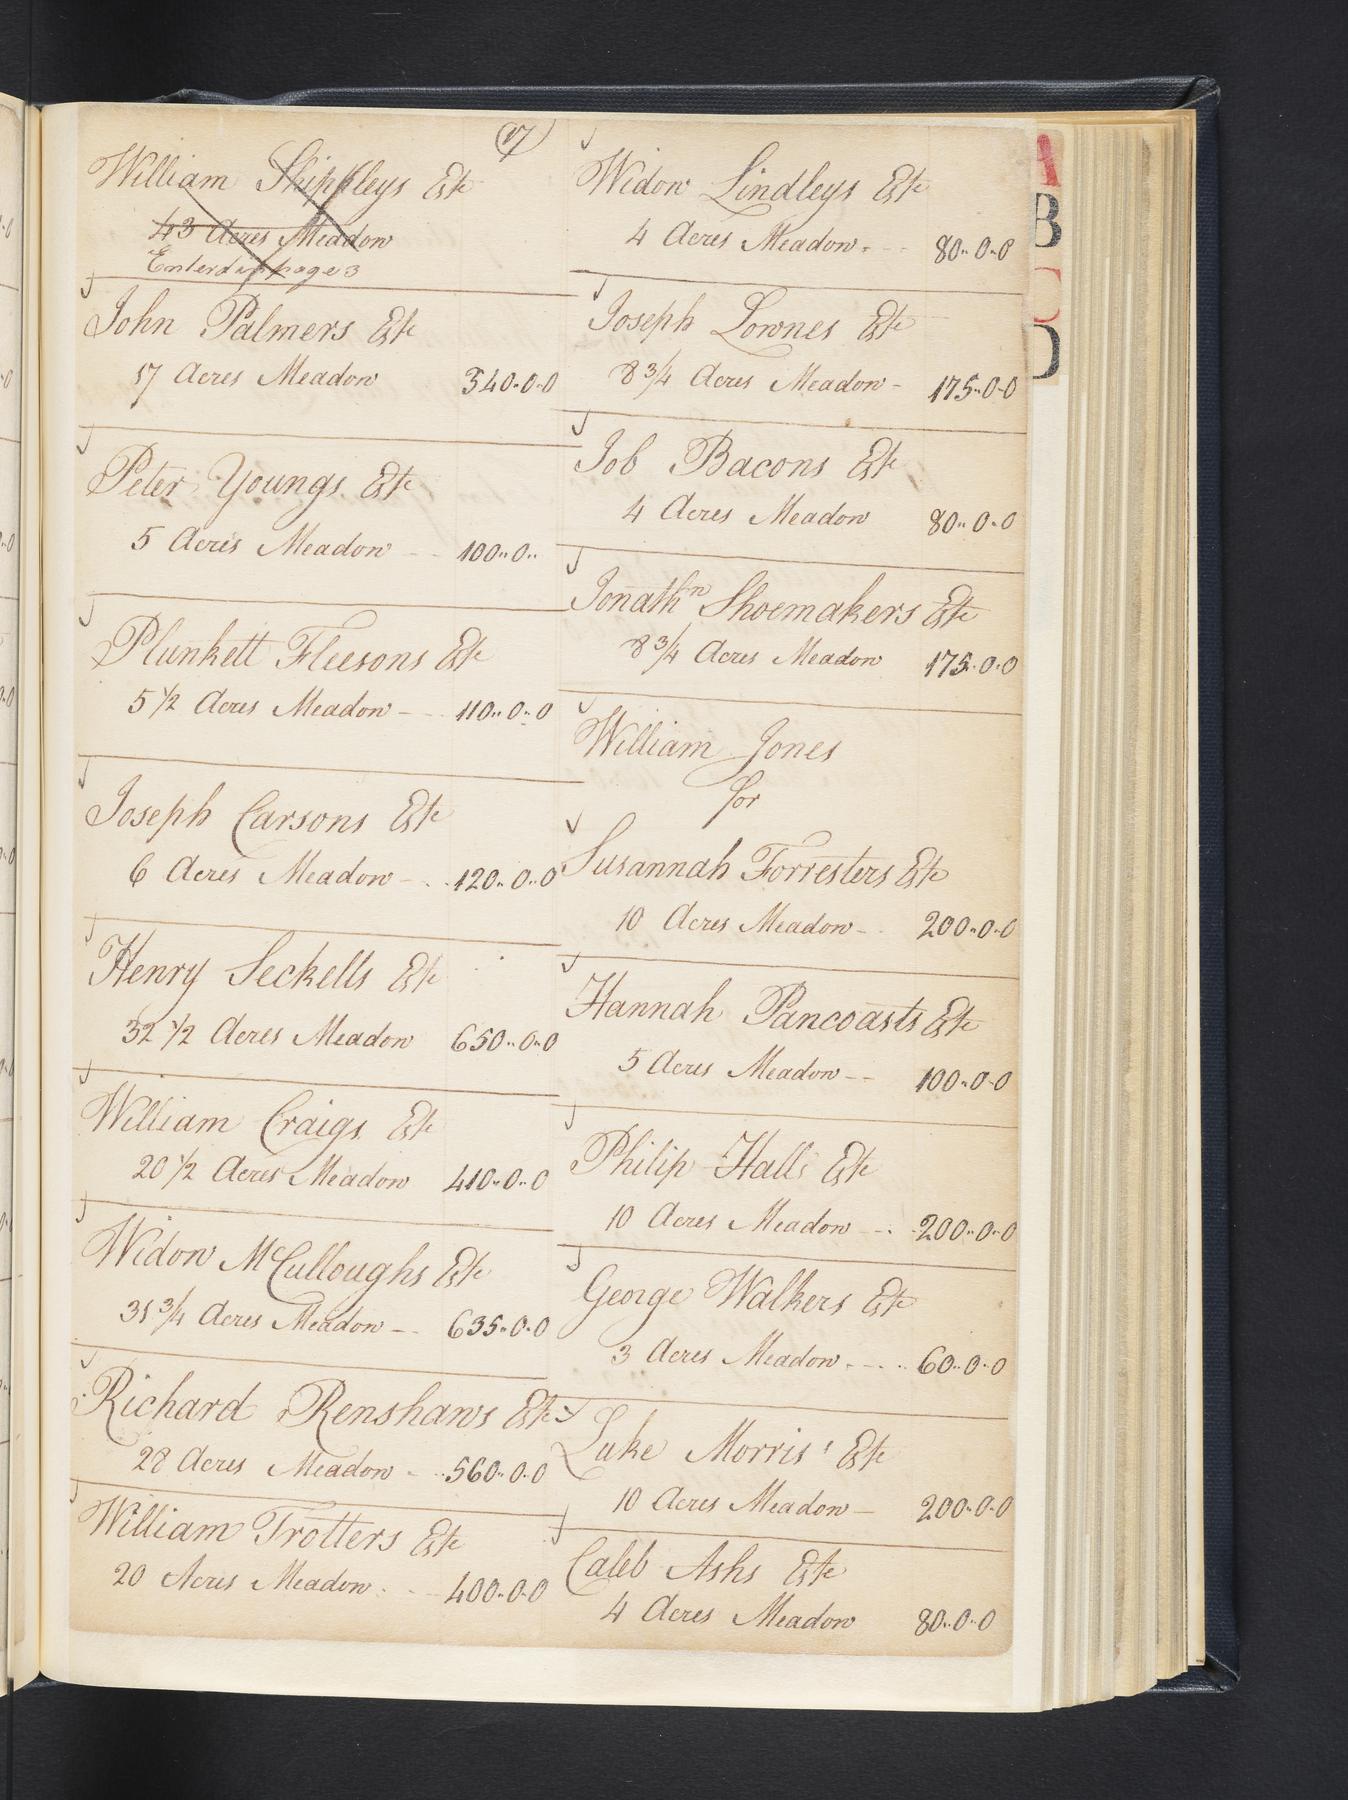 (17)
William Shippleys Est
43 Acres Meadow
Enterd in page 3
John Palmers Est
17 Acres Meadow 340..0..0
Peter Youngs Est
5 Acres Meadow -- 100..0..
Plunkett Fleesons Est
5 1/2 Acres Meadow -- 110..0..0
Joseph Carsons Est
6 Acres Meadow -- 120..0..0
Henry Seckells Est
32 1/2 Acres Meadow 650..0..0
William Craigs Est
20 1/2 Acres Meadow 410..0..0
Widow McCulloughs Est
31 3/4 Acres Meadow -- 635..0..0
Richard Renshaws Est
28 Acres Meadow - 560..0..0
William Trotters Est
20 Acres Meadow -- 400..0..0
Widow Lindleys Est
4 Acres Meadow -- 80..0..0
Joseph Lownes Est
8 3/4 Acres Meadow - 175..0..0
Job Bacons Est
4 Acres Meadow 80..0..0
Jonathn Shoemakers Est
8 3/4 Acres Meadow 175..0..0
William Jones
for
Susannah Forresters Est
10 Acres Meadow -- 200..0..0
Hannah Pancoasts Est
5 Acres Meadow -- 100..0..0
Philip Halls Est
10 Acres Meadow -- 200..0..0
George Walkers Est
3 Acres Meadow -- 60..0..0
Luke Morris' Est
10 Acres Meadow - 200..0..0
Caleb Ashs Est
4 Acres Meadow 80..0..0
A
B
C
D